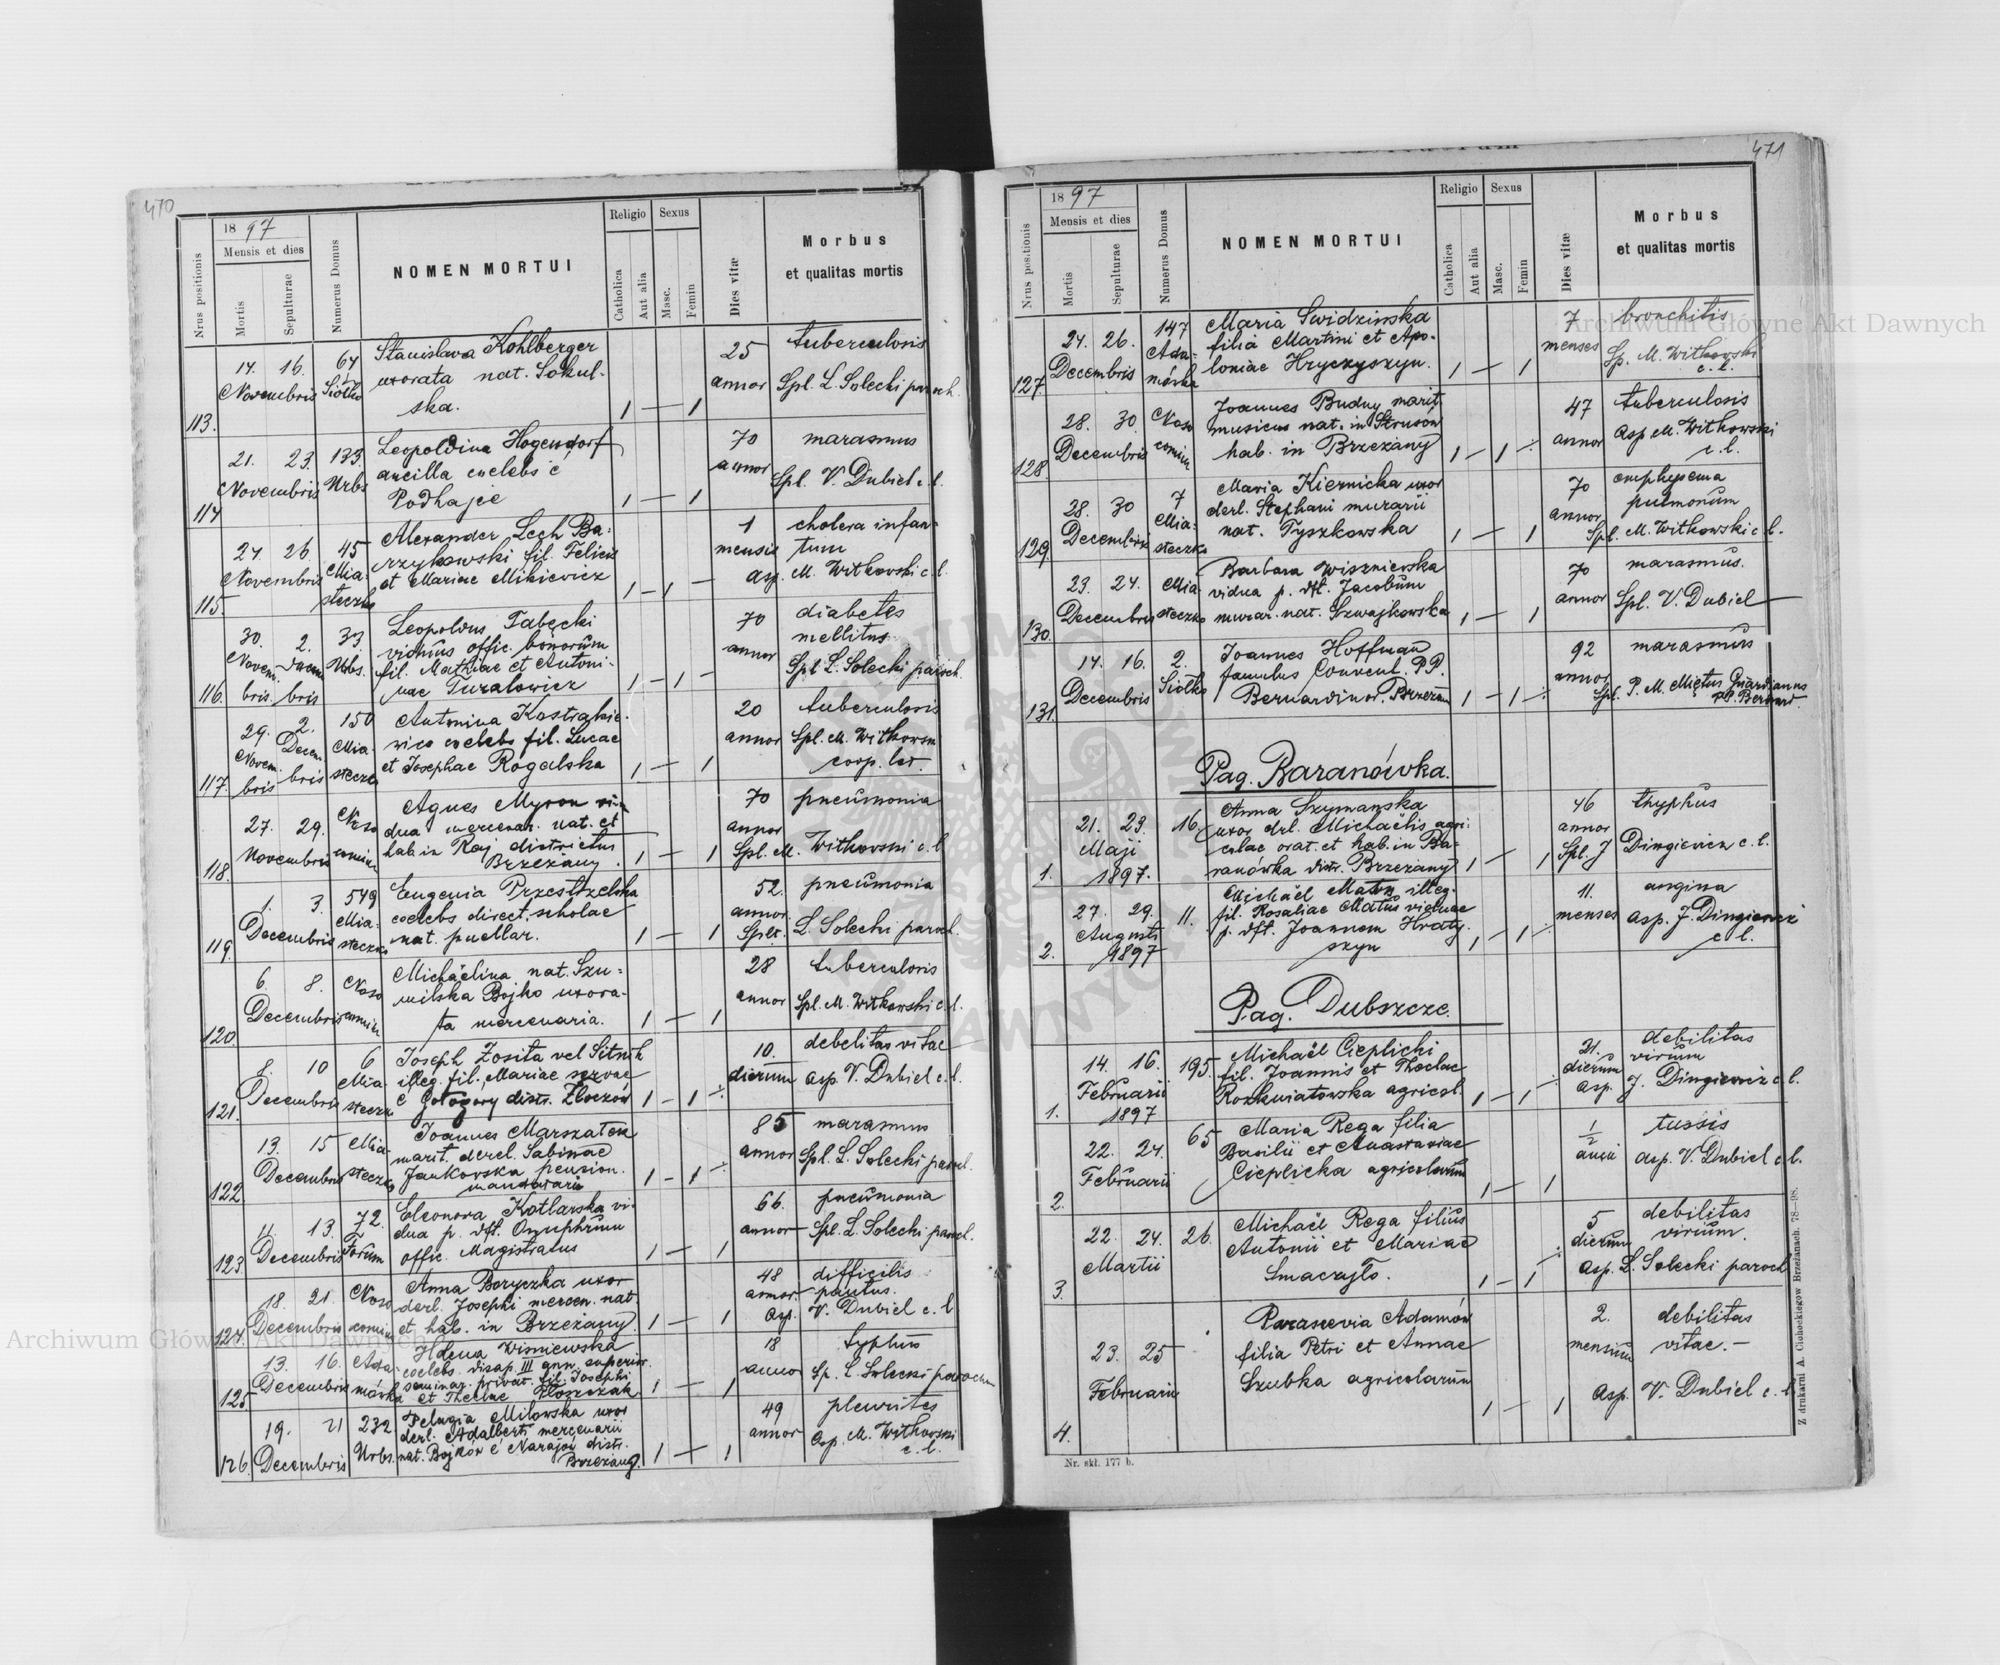 470
1897
Nrus positionis
Mensis et dies
Mortis
Sepulturae
Numerus Domus
NOMEN MORTUI
Religio
Catholica
Aut alia
Sexus
Masc.
Femin
Dies vitæ
Morbus
et qualitas mortis
113. 14. 16. Novembris 64 Siółko
Stanislava Kohlberger
uxorata nat. Sokul-
ska.
1 — 1
25 annor
tuberculosis
Spl. L. Solecki paroch.
114 21. 23. Novembris 133. Urbs
Leopoldina Hogendorf
ancilla coelebs é
Podhajce
1 — 1
70 annor
marasmus
Spl. V. Dubiel c. l.
115. 24 26 Novembris 45 Mia-
steczko
Alexander Lech Ba-
rzykowski fil. Felicis
et Mariae Mikiewicz
1 - 1 —
1 mensis
cholera infan-
tum
asp. M. Witkowski c. l.
116. 30. Novem- bris. 2. Decem- bris 33. Urbs.
Leopoldus Tabęcki
viduus offic. bonorum
fil. Mathiae et Antoni-
nae Turalowicz
1 - 1 —
70 annor
diabetes
mellitus
Spl L. Solecki paroch.
117. 29. Novem- bris 2. Decem- bris 150 Mia-
steczko
coelebs fil. Lucae
et Josephae Rogalska
1 — 1
20 annor
tuberculosis
Spl. M. Witkowski
coop. lat.
118. 27. 29. Novembris Noso
comium
Agnes Myron vi-
dua mercenar. nat. et
hab. in Raj districtus
Brzeżany.
1 — 1
70 annor
pneumonia
Spl. M. Witkowski c. l
119. 1. 3. Decembris 549 Mia-
steczko
Eugenia Przestrzelska
coelebs direct. scholae
nat. puellar.
1 — 1
52. annor.
pneumonia
L. Solecki paroch.
120. 6. 8. Decembris Noso
comium
Michäelina nat. Szu-
milska Bojko uxora-
ta mercenaria.
1 — 1
28 annor
tuberculosis
Spl. M. Witkowski c. l.
121. 8. 10 Decembris 6 Mia
steczko
Joseph Zosita vel Sitnik
illeg. fil. Mariae servae
é Gołogory distr. Złoczów
1 - 1 -
10. dierum
debelitas vitae
asp. V. Dubiel c. l.
122 13. 15 Decembris Mia-
steczko
Joannes Marszałek
marit. derel. Sabinae
Jankowska pension.
mandataris
1 - 1 -
85 annor
marasmus
Spl. L. Solecki paroch.
123. 11. 13. Decembris 72. Forum
Eleonora Kotlarska vi-
dua p. dft. Onuphrium
offic. Magistratus
1 — 1
66. annor
pneumonia
Spl. L. Solecki paroch.
124. 18. 21. Decembris Noso
comium
Anna Boryczka uxor
derl. Josephi mercen. nat.
et hab. in Brzeżany.
1 — 1
48 annor
difficilis
partus.
asp. V. Dubiel c. l
125 13. 16. Decembris Ada-
mówka
Helena Wisniewska
coelebs. discip. III ann. superior.
seminar. privat. fil. Josephi
et Theclae
1 — 1
18 annor
typhus
Sp. L Solecki parochus
126. 19. 21 Decembris 232 Urbs.
Pelagia Milowska uxor
derl. Adalberti mercenarii
nat. Bojków é Narajów distr.
Brzeżany.
1 — 1
49 annor
pleurites
asp. M. Witkowski
c. l.
471
1897
Nrus positionis
Mensis et dies
Mortis
Sepulturae
Numerus Domus
NOMEN MORTUI
Religio
Catholica
Aut alia
Sexus
Masc.
Femin
Dies vitæ
Morbus
et qualitas mortis
127. 24. 26. Decembris 147 Ada-
mówka
Maria Swidzinska
filia Martini et Apo-
loniae Hryczyszyn.
1 — 1
7 menses
bronchitis
Sp. M. Witkowski
c. l.
128. 28. 30. Decembris Noso
comium
Joannes Budny marit.
musicus nat. in Strusów
hab. in Brzeżany
1 - 1 -
47 annor
tuberculosis
asp M. Witkowski
c. l.
129. 28. 30 Decembris 7 Mia-
steczko
Maria Kiernicka uxor
derl. Stephani murarii
nat. Tyszkowska
1 — 1
70 annor
emphysema
pulmonum
Spl. M. Witkowski c. l.
130. 23. 24. Decembris Mia
steczko
Barbara Wiszniewska
vidua p. dft. Jacobum
murar. nat. Szwajkowska
1 — 1
70 annor
marasmus.
Spl. V. Dubiel
131 14. 16. Decembris 2. Siółko
Joannes Hoffman
famulus Convent. PP.
Bernardinor. Brzeżan
1 - 1 -
92 annor
marasmus
Spl. P. M. Miętus Guardianus
PP. Bernard.
Pag. Baranówka.
1. 21. 23. Maji 1897. 16.
Anna Szymanska
uxor drl. Michaëlis agri-
colae orat. et hab. in Ba-
ranówka distr. Brzeżany
1 — 1
46 annor
thyphus
Spl. J Dingiewicz c. l.
2. 27. 29. Augusti 1897 11.
Michaël Matus illeg.
fil. Rosaliae Matus viduae
p. dft. Joannem Hraty-
szyn
1 - 1 -
11. menses
angina
asp. J. Dingiewicz
c l.
Pag. Dubszcze.
1. 14. 16. Februarii 1897 195.
Michaël Cieplicki
fil. Joannis et Theclae
Rozkwiatowska agricol.
1 - 1 -
21. dierum
debilitas
virium
asp. J. Dingiewicz c l.
2. 22. 24. Februarii 65
Maria Rega filia
Basilii et Anastasiae
Cieplicka agricolarum
1 — 1
1/2 anni
tussis
asp. V. Dubiel c l.
3. 22. 24. Martii 26.
Michaël Rega filius
Antonii et Mariae
Smaczyło.
1 - 1 -
5 dierum
debilitas
virium.
asp. L. Solecki paroch
4. 23. 25 Februarii
Parascevia Adamów
filia Petri et Annae
Szubka agricolarum
1 — 1
2. mensium
debilitas
vitae. -
asp. V. Dubiel c. l.
Nr. skł. 177 b.
Z drukarni A. Cichockiegow Brzeżanach. 78—98.
Archiwum Główne Akt Dawnych
Archiwum Główne Akt Dawnych